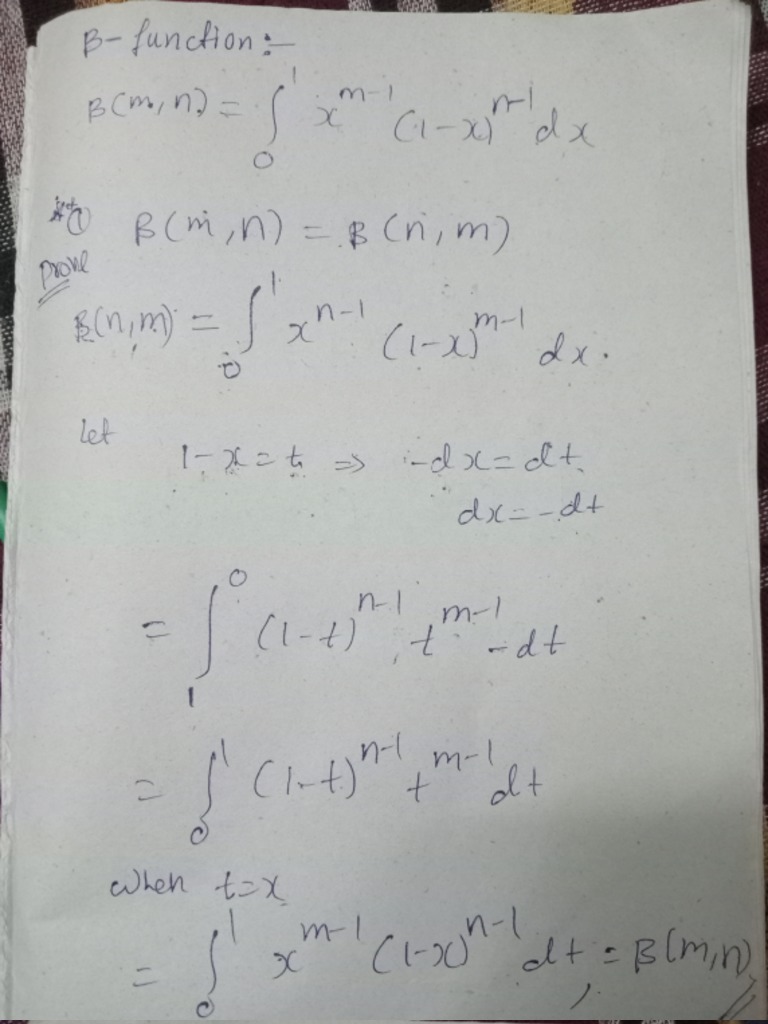 β-function:-
β(m,n) = ∫₀¹ x^{m-1} (1-x)^{n-1} dx
① β(m,n) = β(n,m)
prove
β(n,m) = ∫₀¹ x^{n-1} (1-x)^{m-1} dx.
Let
1-x=t ⇒ -dx=dt
dx=-dt
= ∫₁⁰ (1-t)^{n-1} t^{m-1} -dt
= ∫₀¹ (1-t)^{n-1} t^{m-1} dt
when t=x
= ∫₀¹ x^{m-1} (1-x)^{n-1} dt = β(m,n)